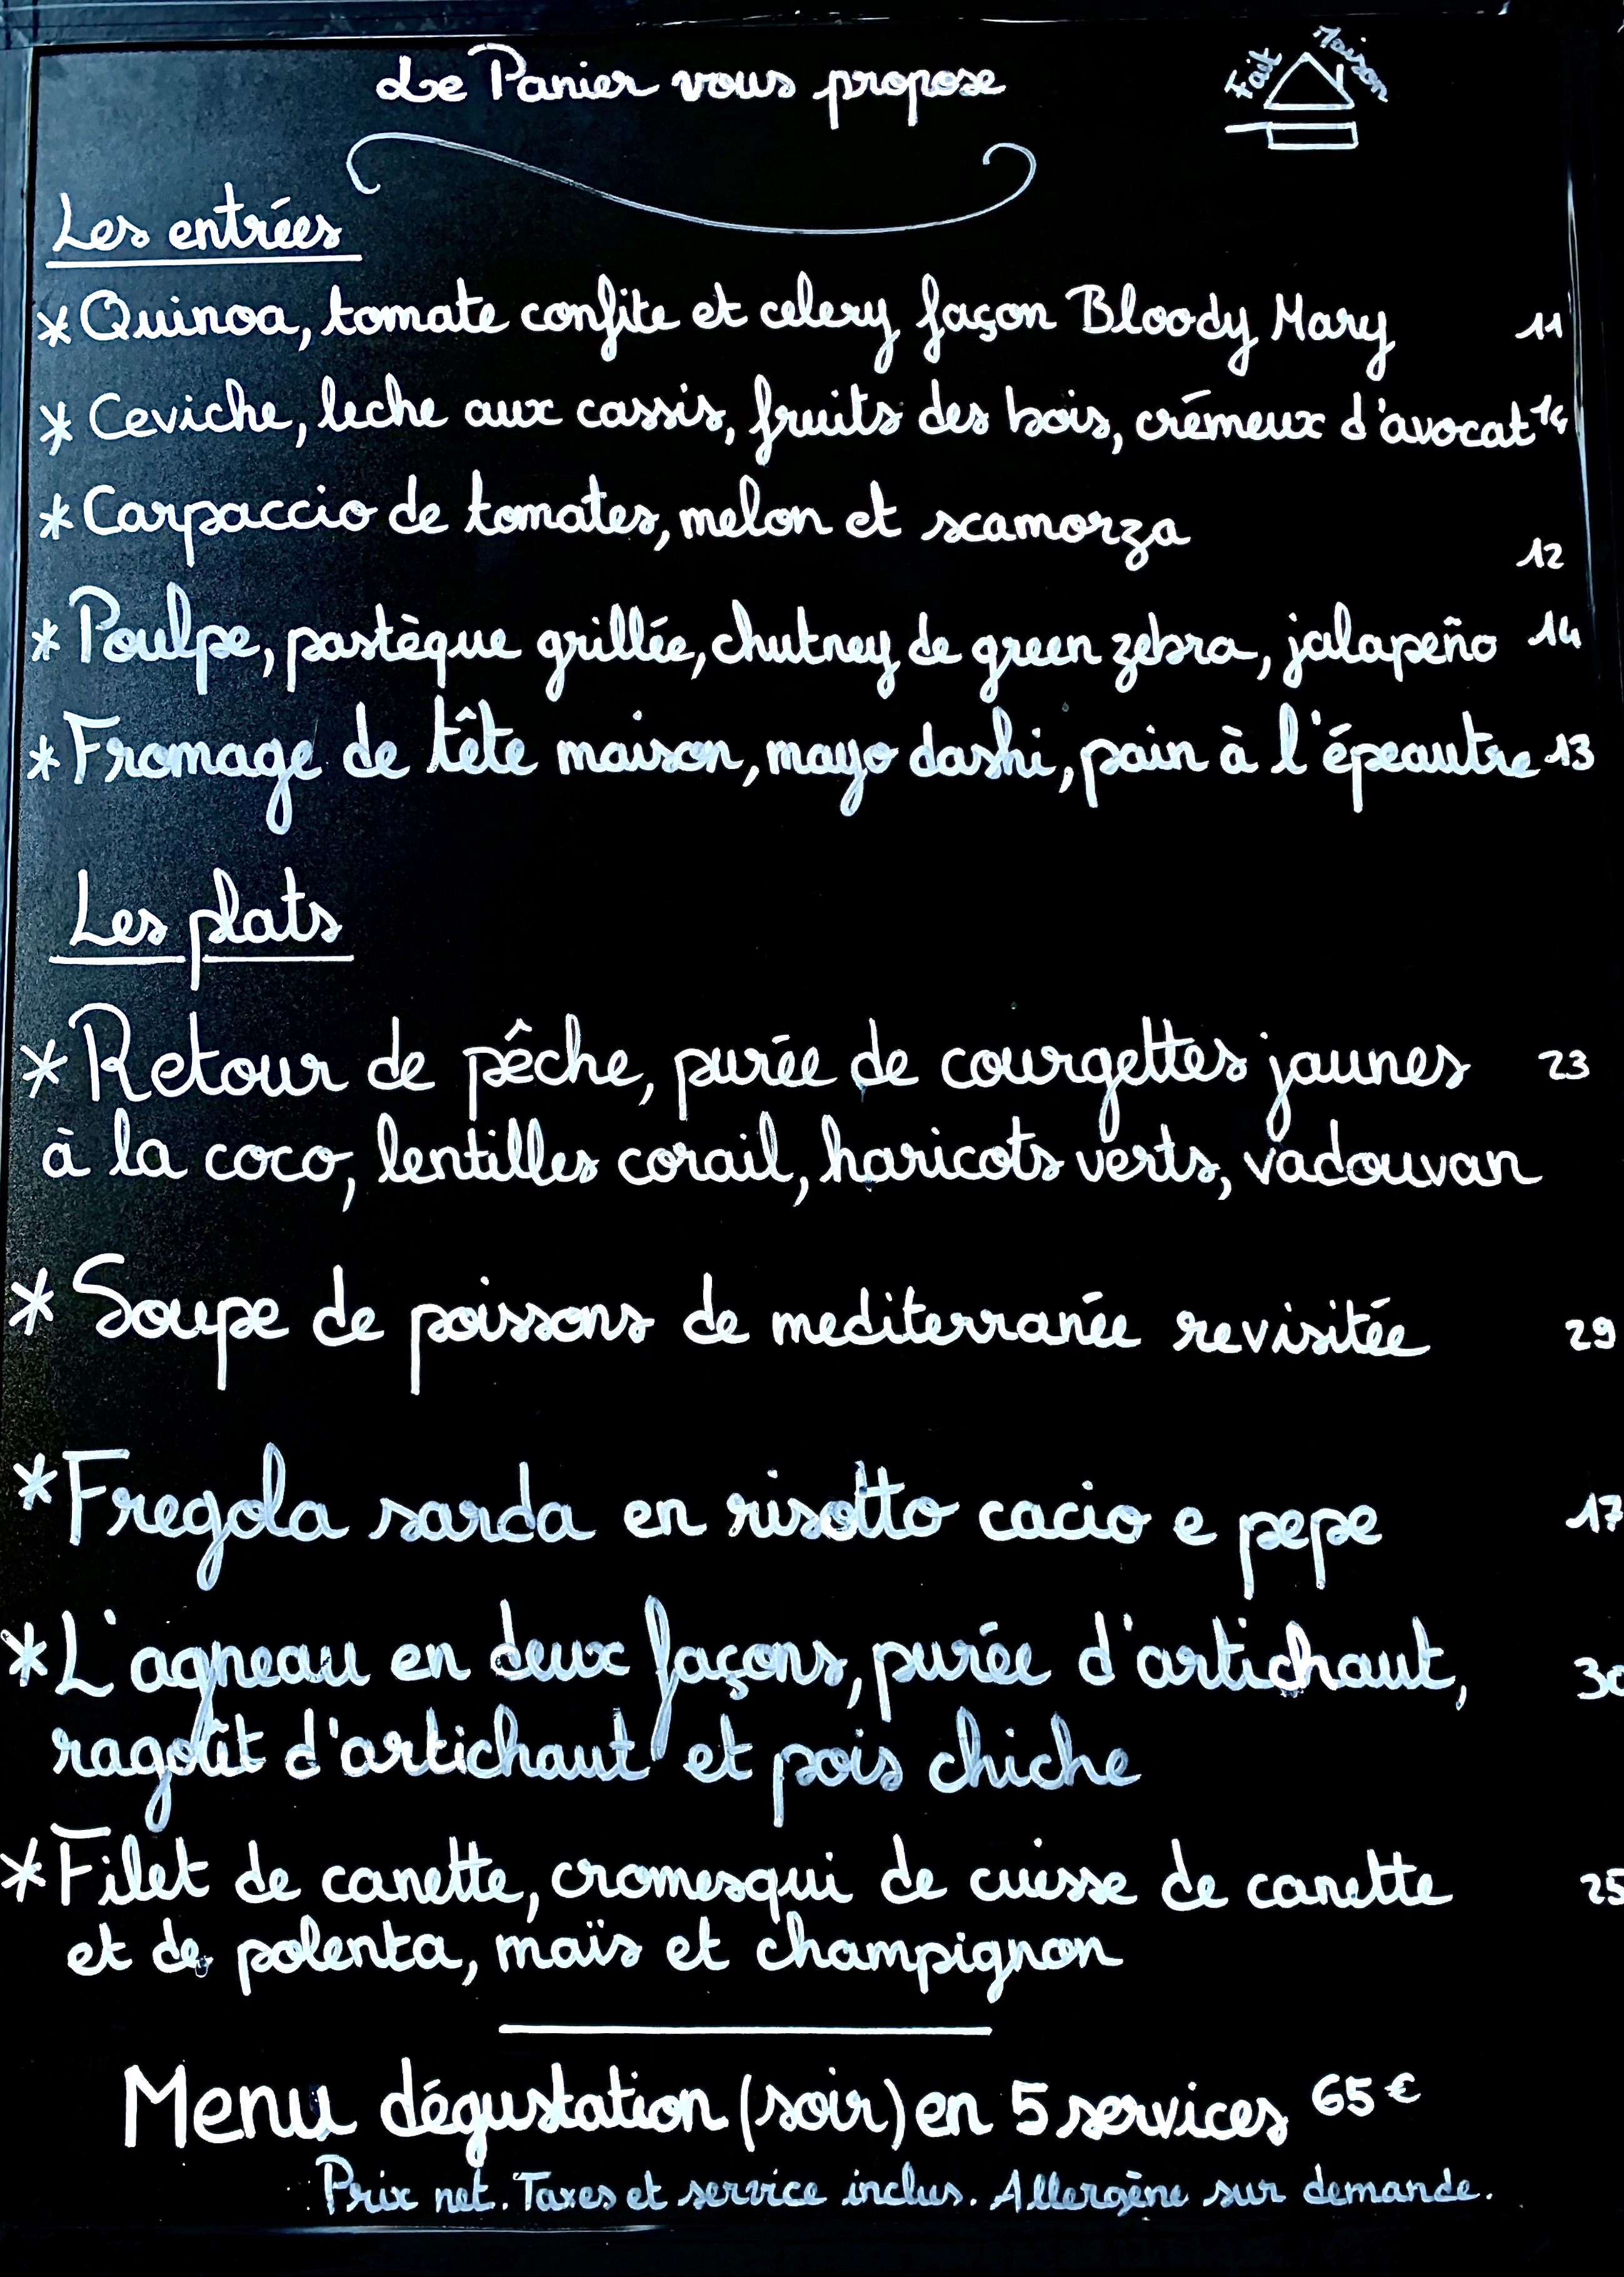 Le Panier vous propose
Fait Maison
Les entrées
* Quinoa, tomate confite et celery façon Bloody Mary 11
* Ceviche, leche aux cassis, fruits des bois, crémeux d'avocat 14
* Carpaccio de tomates, melon et scamorza
12
* Poulpe, pastèque grillée, chutney de green zebra, jalapeño 14
* Fromage de tête maison, mayo dashi, pain à l'épeautre 13
Les plats
* Retour de pêche, purée de courgettes jaunes 23
à la coco, lentilles corail, haricots verts, vadouvan
* Soupe de poissons de mediterranée revisitée 29
* Fregola sarda en risotto cacio e pepe 17
* L'agneau en deux façons, purée d'artichaut, 30
ragoût d'artichaut et pois chiche
* Filet de canette, cromesqui de cuisse de canette 25
et de polenta, maïs et champignon
Menu dégustation (soir) en 5 services 65€
Prix net. Taxes et service inclus. Allergène sur demande.